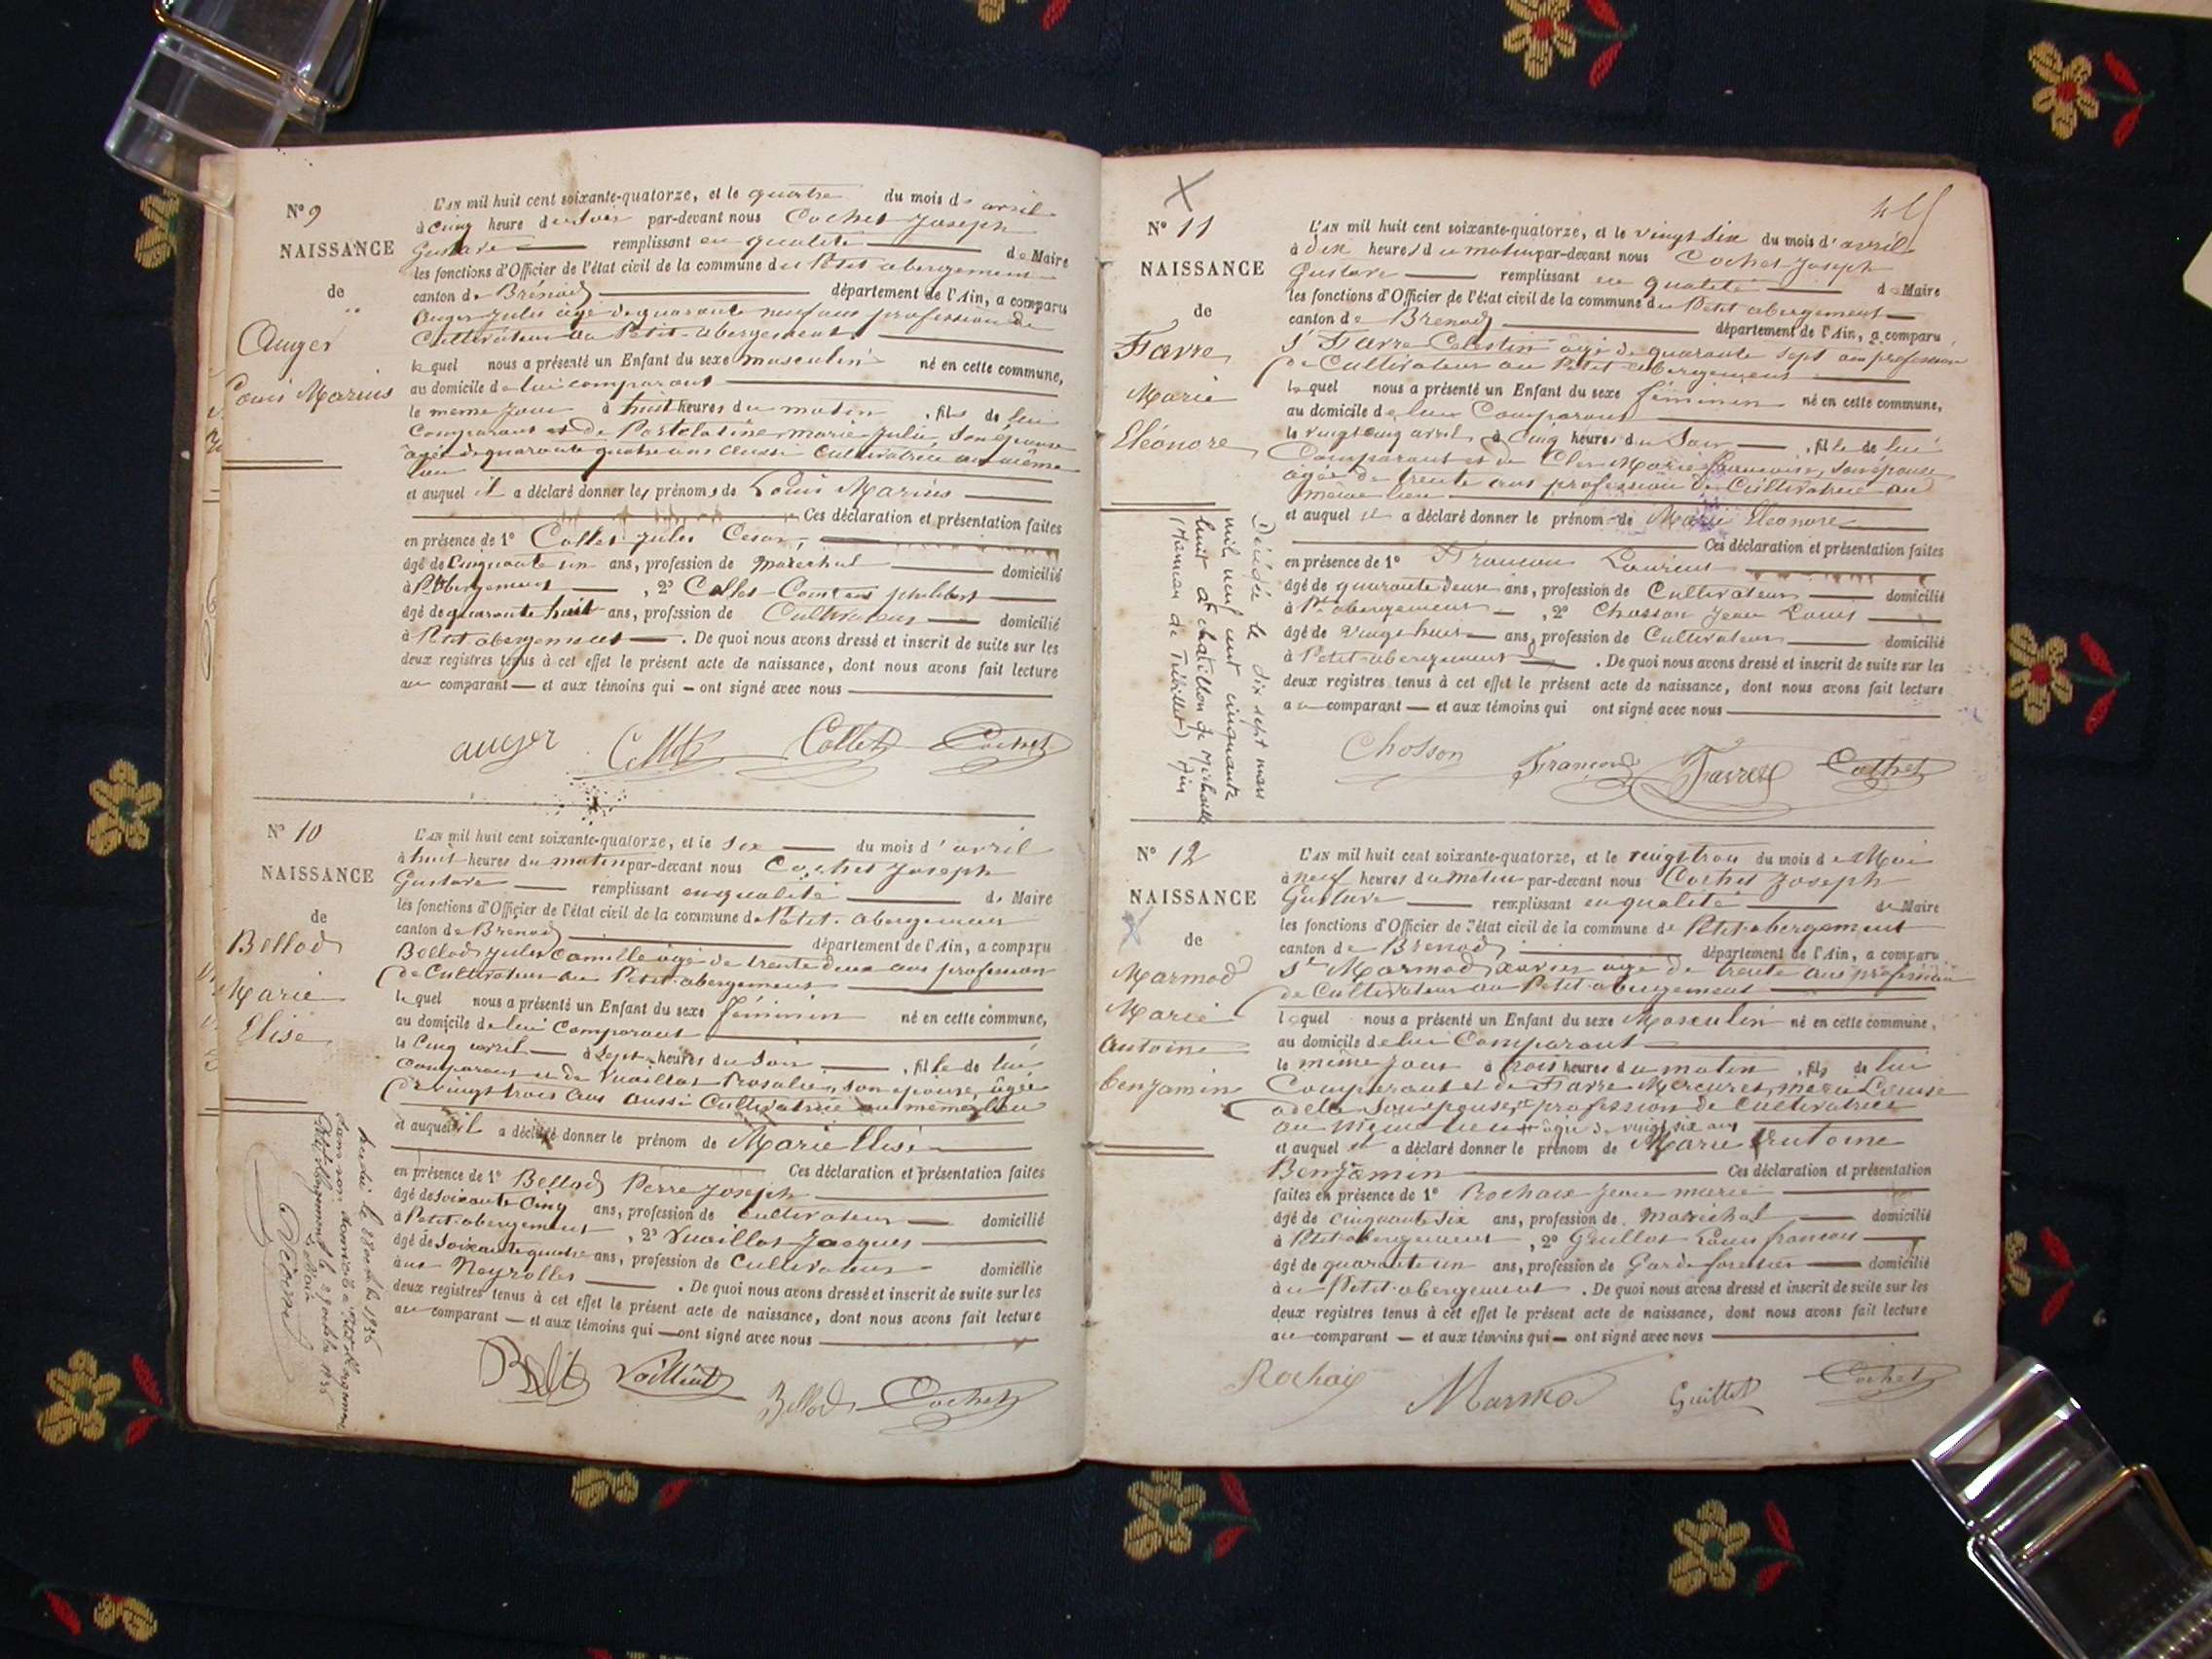 N° 9
NAISSANCE
de
Auger
Louis Marius
L'AN mil huit cent soixante-quatorze, et le quatre du mois d avril
à cinq heure du soir par-devant nous Cochet Joseph
Gustave remplissant en qualité de Maire
les fonctions d'Officier de l'état civil de la commune du Petit abergement
canton de Brénod département de l'Ain, a comparu
Auger Jules âgé de quarante neuf ans profession de
Cultivateur au Petit-abergement
lequel nous a présenté un Enfant du sexe masculin né en cette commune,
au domicile de lui comparant
le même jour à huit heures du matin, fils de lui
comparant et de marie Julie, son épouse
âgée de quarante quatre ans aussi Cultivatrice au même
lieu
et auquel il a déclaré donner les prénoms de Louis Marius
Ces déclaration et présentation faites
en présence de 1° Collet Jules Cesar,
âgé de Cinquante un ans, profession de marechal domicilié
à Pt abergement, 2° Collet philibert
âgé de quarante huit ans, profession de Cultivateur domicilié
à Petit abergement. De quoi nous avons dressé et inscrit de suite sur les
deux registres tenus à cet effet le présent acte de naissance, dont nous avons fait lecture
au comparant — et aux témoins qui — ont signé avec nous
auger Collet Collet Cochet
N° 10
NAISSANCE
de
Bellod
Marie
Elise
L'AN mil huit cent soixante-quatorze, et le six du mois d'avril
à huit heures du matin par-devant nous Cochet Joseph
Gustave remplissant en qualité de Maire
les fonctions d'Officier de l'état civil de la commune de Petit-abergement
canton de Brenod département de l'Ain, a comparu
Bellod Jules Camille âgé de trente deux ans profession
de Cultivateur au Petit-abergement
lequel nous a présenté un Enfant du sexe féminin né en cette commune,
au domicile de lui comparant
le Cinq avril à sept heures du soir, fille de lui
comparant et de Vuaillat Rosalie, son épouse, âgée
de vingt trois ans aussi Cultivatrice au même lieu
et auquel il a déclaré donner le prénom de Marie Elise
Ces déclaration et présentation faites
en présence de 1° Bellod Pierre Joseph
âgé de soixante Cinq ans, profession de cultivateur domicilié
à Petit-abergement, 2° Vuaillat Jacques
âgé de soixante quatre ans, profession de Cultivateur domicilié
aux Neyrolles. De quoi nous avons dressé et inscrit de suite sur les
deux registres tenus à cet effet le présent acte de naissance, dont nous avons fait lecture
au comparant — et aux témoins qui — ont signé avec nous
Bellod Cochet
N° 11
NAISSANCE
de
Favre
Marie
Eléonore
Décédée le dix sept mars
mil neuf cent cinquante
huit à Chatillon de Michaille
(Hameau de ) Ain
L'AN mil huit cent soixante-quatorze, et le vingt six du mois d'avril
à dix heures du matin par-devant nous Cochet Joseph
Gustave remplissant en qualité de Maire
les fonctions d'Officier de l'état civil de la commune du Petit abergement
canton de Brenod département de l'Ain, a comparu
Sr Favre Celestin âgé de quarante sept ans profession
de Cultivateur au Petit-abergement
lequel nous a présenté un Enfant du sexe féminin né en cette commune,
au domicile de lui Comparant
le vingt cinq avril à Cinq heures du Soir, fille de lui
Comparant et de Marie françoise, son épouse
âgée de trente ans profession de Cultivatrice au
même lieu
et auquel il a déclaré donner le prénom de Marie Eleonore
Ces déclaration et présentation faites
en présence de 1° Françon Laurent
âgé de quarante deux ans, profession de Cultivateur domicilié
à Pt abergement, 2° Chosson Jean Louis
âgé de vingt huit ans, profession de Cultivateur domicilié
à Petit-abergement. De quoi nous avons dressé et inscrit de suite sur les
deux registres tenus à cet effet le présent acte de naissance, dont nous avons fait lecture
au comparant — et aux témoins qui ont signé avec nous
Chosson Françon Favre Cochet
N° 12
NAISSANCE
de
Marmod
Marie
Antoine
benjamin
L'AN mil huit cent soixante-quatorze, et le vingt trois du mois de Mai
à neuf heures du matin par-devant nous Cochet Joseph
Gustave remplissant en qualité de Maire
les fonctions d'Officier de l'état civil de la commune de Petit-abergement
canton de Brenod département de l'Ain, a comparu
Sr Marmod Xavier âgé de trente ans profession
de Cultivateur au Petit-abergement
lequel nous a présenté un Enfant du sexe Masculin né en cette commune,
au domicile de lui Comparant
le même jour à trois heures du matin, fils de lui
Comparant et de Favre Mercuret, marie Louise
adele son épouse, profession de Cultivatrice
au même lieu âgée de vingt six ans
et auquel il a déclaré donner le prénom de Marie Antoine
Benjamin Ces déclaration et présentation
faites en présence de 1° Rochaix Jean marie
âgé de cinquante six ans, profession de maréchal domicilié
à Petit-abergement, 2° Guillot Louis françois
âgé de quarante un ans, profession de Garde forestier domicilié
au Petit-abergement. De quoi nous avons dressé et inscrit de suite sur les
deux registres tenus à cet effet le présent acte de naissance, dont nous avons fait lecture
au comparant — et aux témoins qui — ont signé avec nous
Rochaix Marmod Guillot Cochet